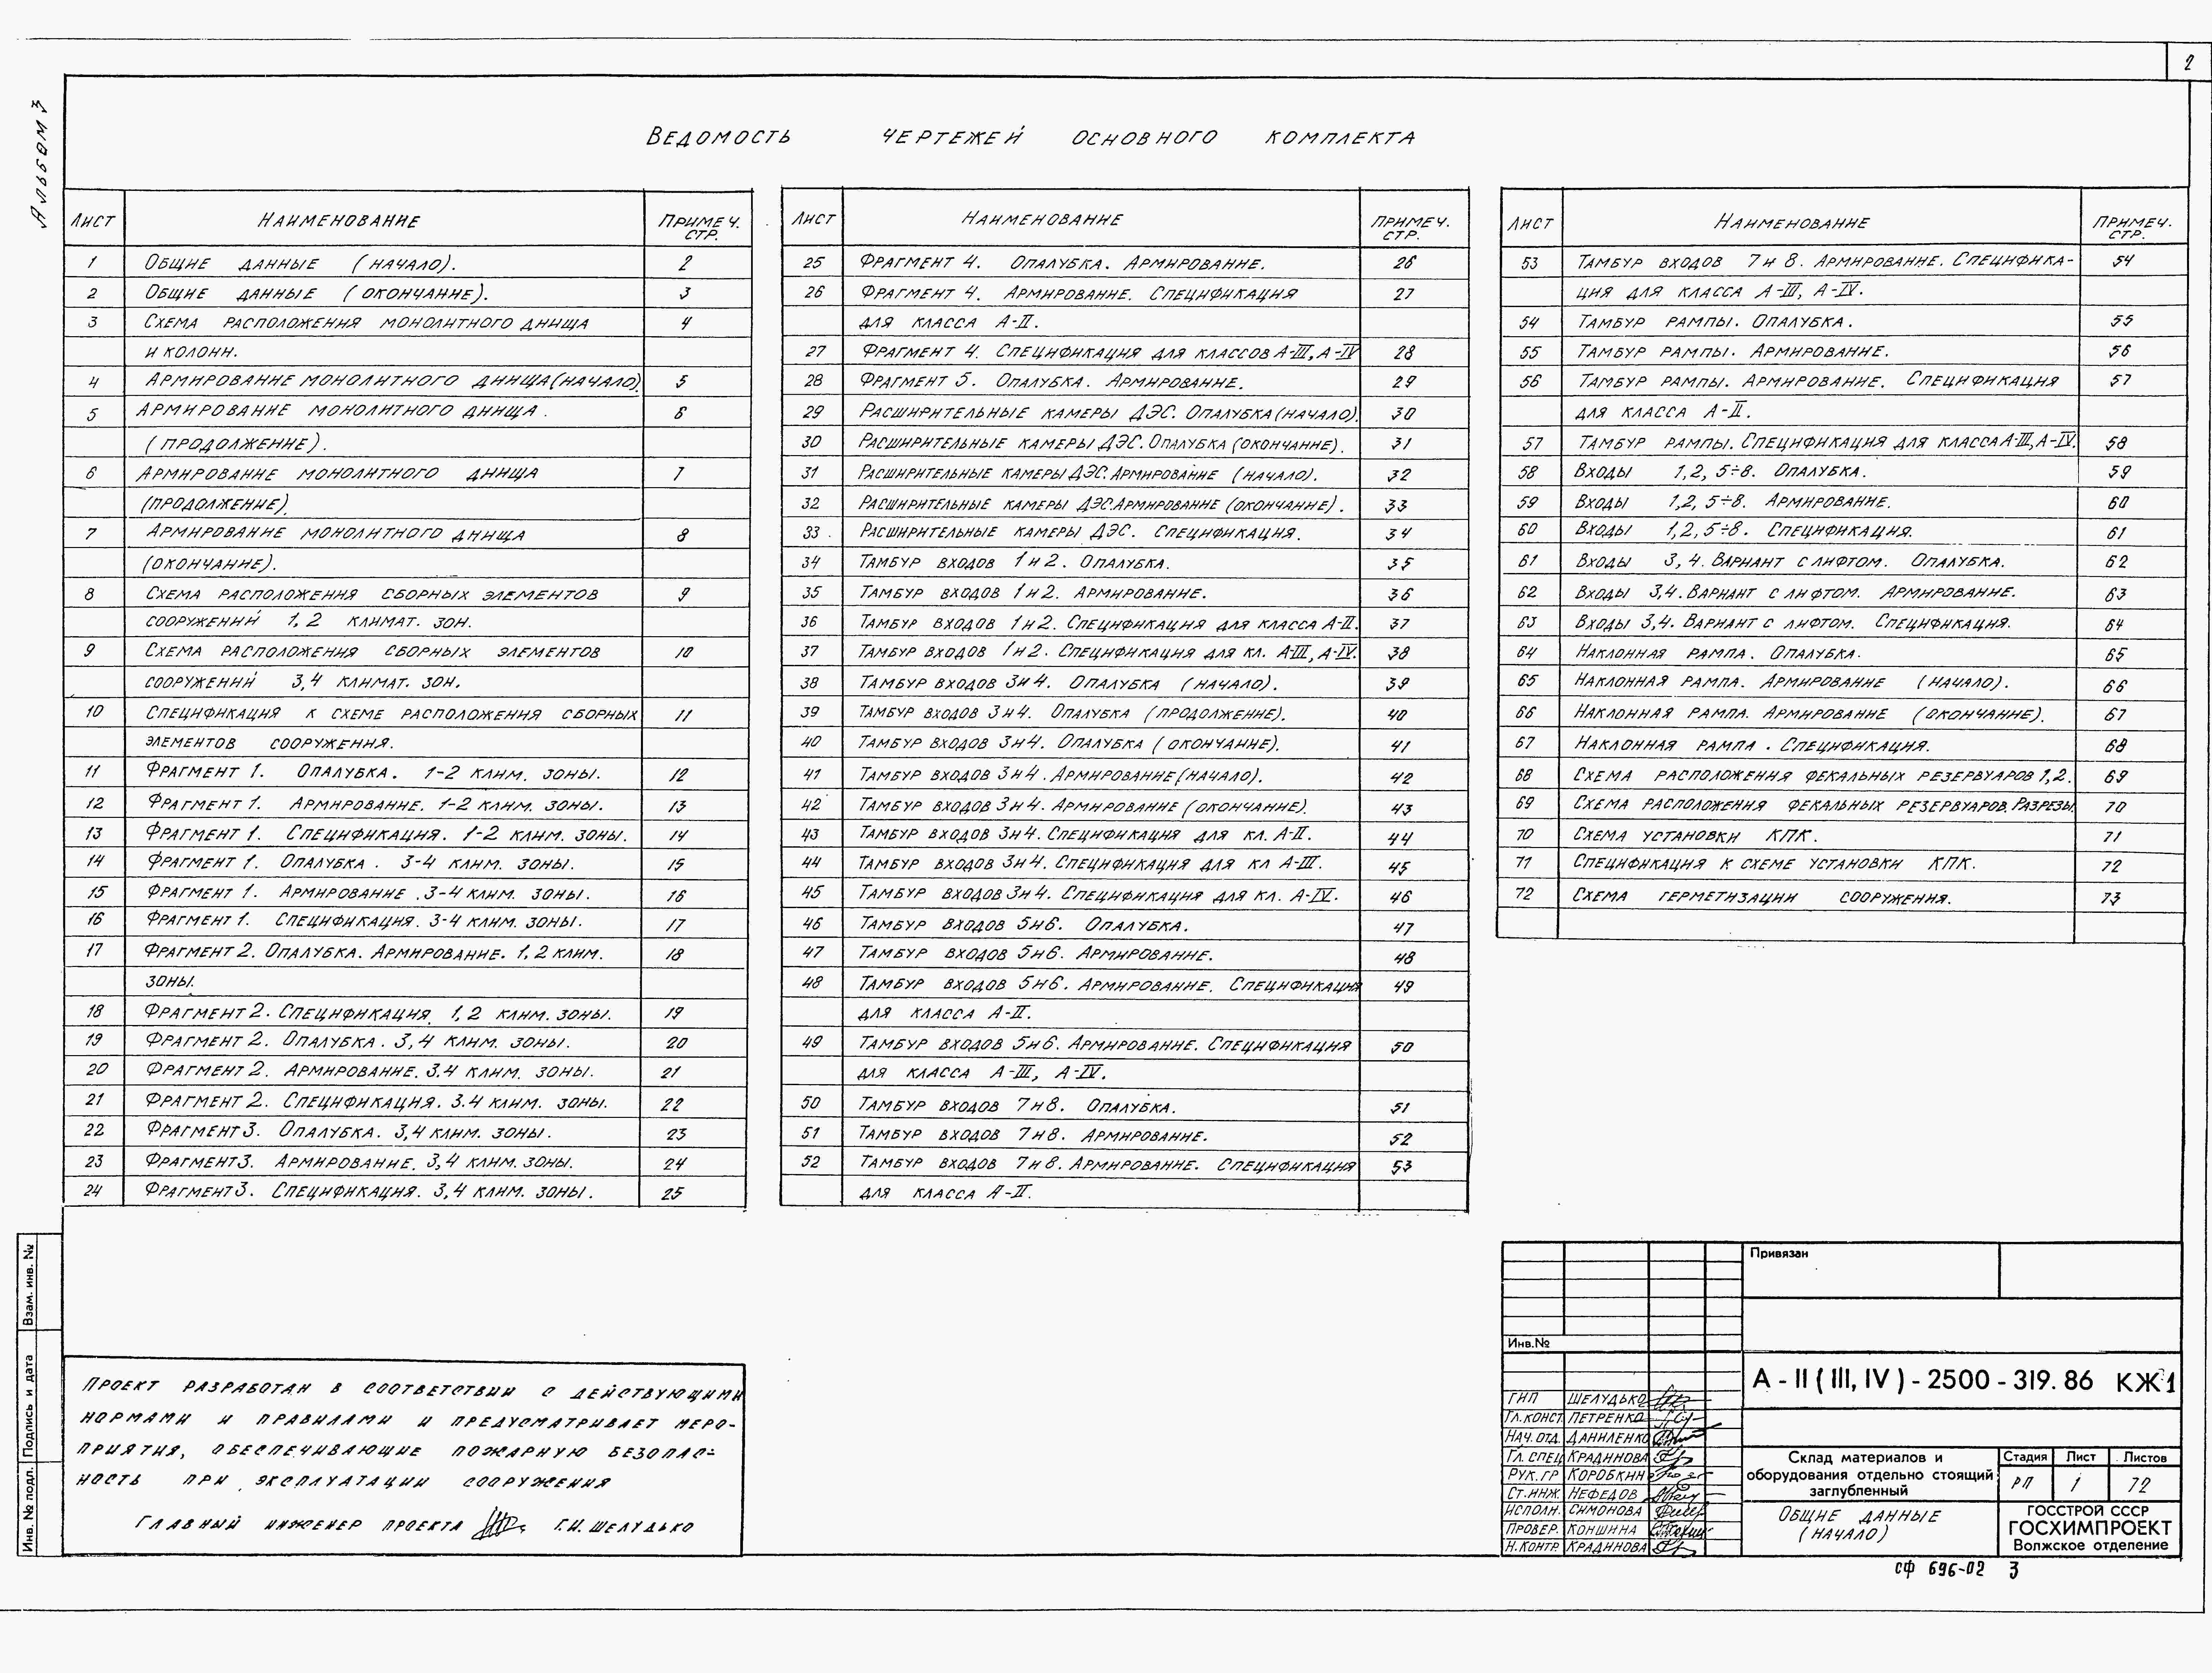 2
Альбом 3
Ведомость чертежей основного комплекта
Лист Наименование Примеч. стр.
1 Общие данные (начало). 2
2 Общие данные (окончание). 3
3 Схема расположения монолитного днища 4
и колонн.
4 Армирование монолитного днища (начало). 5
5 Армирование монолитного днища. 6
(продолжение).
6 Армирование монолитного днища 7
(продолжение).
7 Армирование монолитного днища 8
(окончание).
8 Схема расположения сборных элементов 9
сооружений 1,2 климат. зон.
9 Схема расположения сборных элементов 10
сооружений 3,4 климат. зон.
10 Спецификация к схеме расположения сборных 11
элементов сооружения.
11 Фрагмент 1. Опалубка. 1-2 клим. зоны. 12
12 Фрагмент 1. Армирование. 1-2 клим. зоны. 13
13 Фрагмент 1. Спецификация. 1-2 клим. зоны. 14
14 Фрагмент 1. Опалубка. 3-4 клим. зоны. 15
15 Фрагмент 1. Армирование. 3-4 клим. зоны. 16
16 Фрагмент 1. Спецификация. 3-4 клим. зоны. 17
17 Фрагмент 2. Опалубка. Армирование. 1,2 клим. 18
зоны.
18 Фрагмент 2. Спецификация. 1,2 клим. зоны. 19
19 Фрагмент 2. Опалубка. 3,4 клим. зоны. 20
20 Фрагмент 2. Армирование. 3.4 клим. зоны. 21
21 Фрагмент 2. Спецификация. 3.4 клим. зоны. 22
22 Фрагмент 3. Опалубка. 3,4 клим. зоны. 23
23 Фрагмент 3. Армирование. 3,4 клим. зоны. 24
24 Фрагмент 3. Спецификация. 3,4 клим. зоны. 25
Лист Наименование Примеч. стр.
25 Фрагмент 4. Опалубка. Армирование. 26
26 Фрагмент 4. Армирование. Спецификация 27
для класса А-II.
27 Фрагмент 4. Спецификация для классов А-III, А-IV 28
28 Фрагмент 5. Опалубка. Армирование. 29
29 Расширительные камеры ДЭС. Опалубка (начало). 30
30 Расширительные камеры ДЭС. Опалубка (окончание). 31
31 Расширительные камеры ДЭС. Армирование (начало). 32
32 Расширительные камеры ДЭС. Армирование (окончание). 33
33 Расширительные камеры ДЭС. Спецификация. 34
34 Тамбур входов 1 и 2. Опалубка. 35
35 Тамбур входов 1 и 2. Армирование. 36
36 Тамбур входов 1 и 2. Спецификация для класса А-II. 37
37 Тамбур входов 1 и 2. Спецификация для кл. А-III, А-IV. 38
38 Тамбур входов 3 и 4. Опалубка (начало). 39
39 Тамбур входов 3 и 4. Опалубка (продолжение). 40
40 Тамбур входов 3 и 4. Опалубка (окончание). 41
41 Тамбур входов 3 и 4. Армирование (начало). 42
42 Тамбур входов 3 и 4. Армирование (окончание). 43
43 Тамбур входов 3 и 4. Спецификация для кл. А-II. 44
44 Тамбур входов 3 и 4. Спецификация для кл А-III. 45
45 Тамбур входов 3 и 4. Спецификация для кл. А-IV. 46
46 Тамбур входов 5 и 6. Опалубка. 47
47 Тамбур входов 5 и 6. Армирование. 48
48 Тамбур входов 5 и 6. Армирование. Спецификация 49
для класса А-II.
49 Тамбур входов 5 и 6. Армирование. Спецификация 50
для класса А-III, А-IV.
50 Тамбур входов 7 и 8. Опалубка. 51
51 Тамбур входов 7 и 8. Армирование. 52
52 Тамбур входов 7 и 8. Армирование. Спецификация 53
для класса А-II.
Лист Наименование Примеч. стр.
53 Тамбур входов 7 и 8. Армирование. Специфика- 54
ция для класса А-III, А-IV.
54 Тамбур рампы. Опалубка. 55
55 Тамбур рампы. Армирование. 56
56 Тамбур рампы. Армирование. Спецификация 57
для класса А-II.
57 Тамбур рампы. Спецификация для класса А-III, А-IV. 58
58 Входы 1,2, 5÷8. Опалубка. 59
59 Входы 1,2, 5÷8. Армирование. 60
60 Входы 1,2, 5÷8. Спецификация. 61
61 Входы 3, 4. Вариант с лифтом. Опалубка. 62
62 Входы 3,4. Вариант с лифтом. Армирование. 63
63 Входы 3,4. Вариант с лифтом. Спецификация. 64
64 Наклонная рампа. Опалубка. 65
65 Наклонная рампа. Армирование (начало). 66
66 Наклонная рампа. Армирование (окончание). 67
67 Наклонная рампа. Спецификация. 68
68 Схема расположения фекальных резервуаров 1,2. 69
69 Схема расположения фекальных резервуаров. Разрезы. 70
70 Схема установки КПК. 71
71 Спецификация к схеме установки КПК. 72
72 Схема герметизации сооружения. 73
Проект разработан в соответствии с действующими
нормами и правилами и предусматривает меро-
приятия, обеспечивающие пожарную безопас-
ность при эксплуатации сооружения
Главный инженер проекта Г.И. Шелудько
Взам. инв. №
Подпись и дата
Инв. № подл.
Привязан
Инв.№
А - II ( III, IV ) - 2500 - 319. 86 КЖ1
ГИП Шелудько
Гл. конст. Петренко
Нач. отд. Даниленко
Гл. спец. Крадинова
Рук. гр Коробкин
Ст. инж. Нефедов
Исполн. Симонова
Провер. Коншина
Н. контр. Крадинова
Склад материалов и
оборудования отдельно стоящий
заглубленный
Стадия Лист Листов
РП 1 72
Общие данные
(начало)
ГОССТРОЙ СССР
ГОСХИМПРОЕКТ
Волжское отделение
СФ 696-02 3